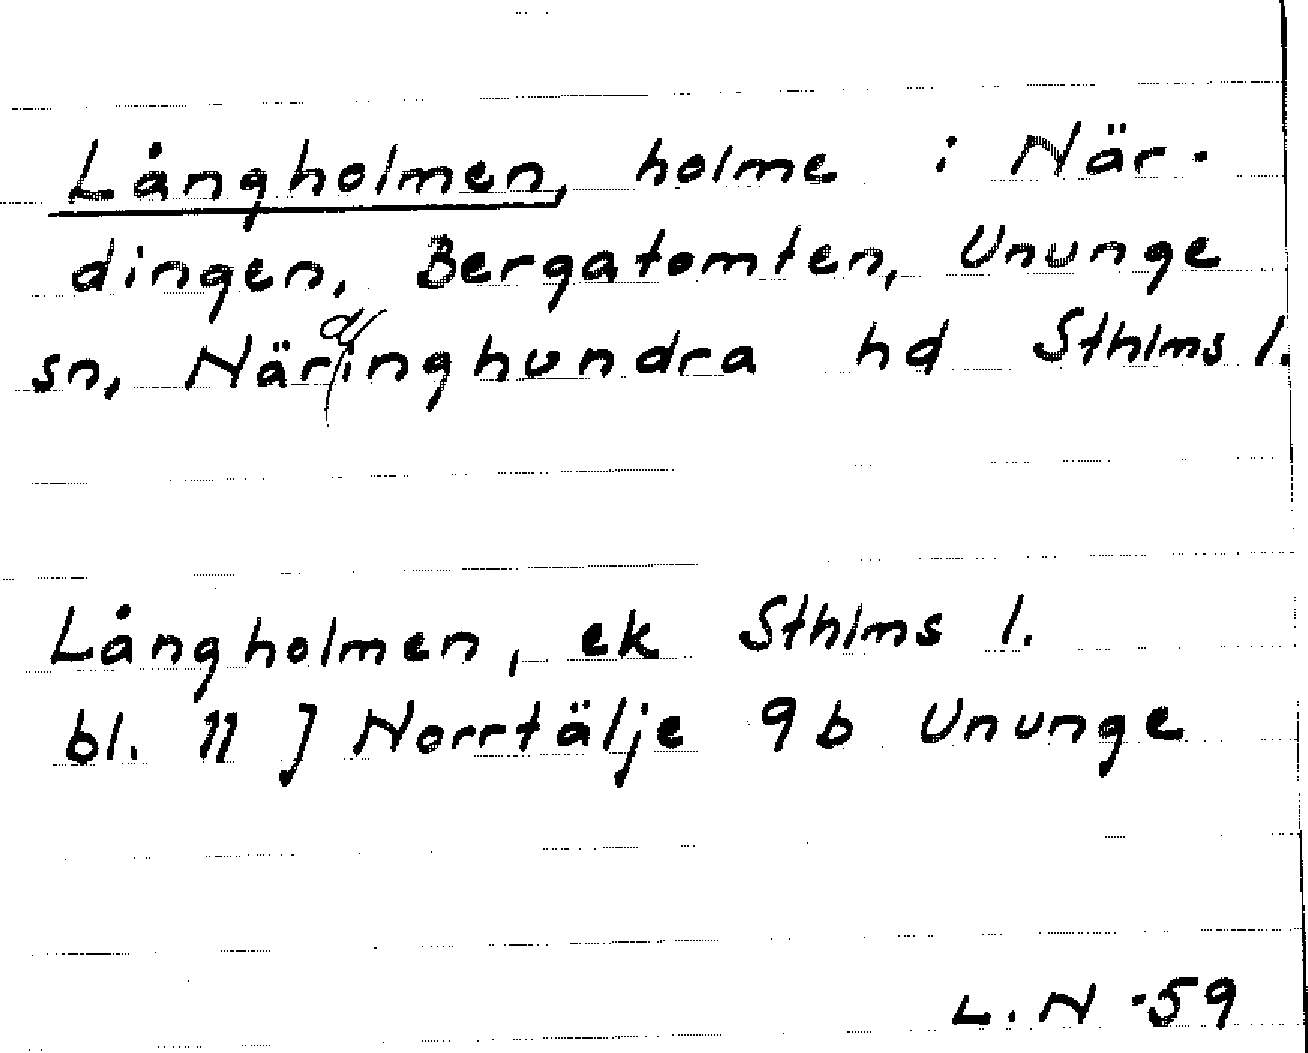 Långholmen, holme i När-
dingen, Bergatomten, Ununge
sn, Närdinghundra hd Sthlms l.
Långholmen, ek Sthlms l.
bl. 11 J Norrtälje 9b Ununge
L. N -59